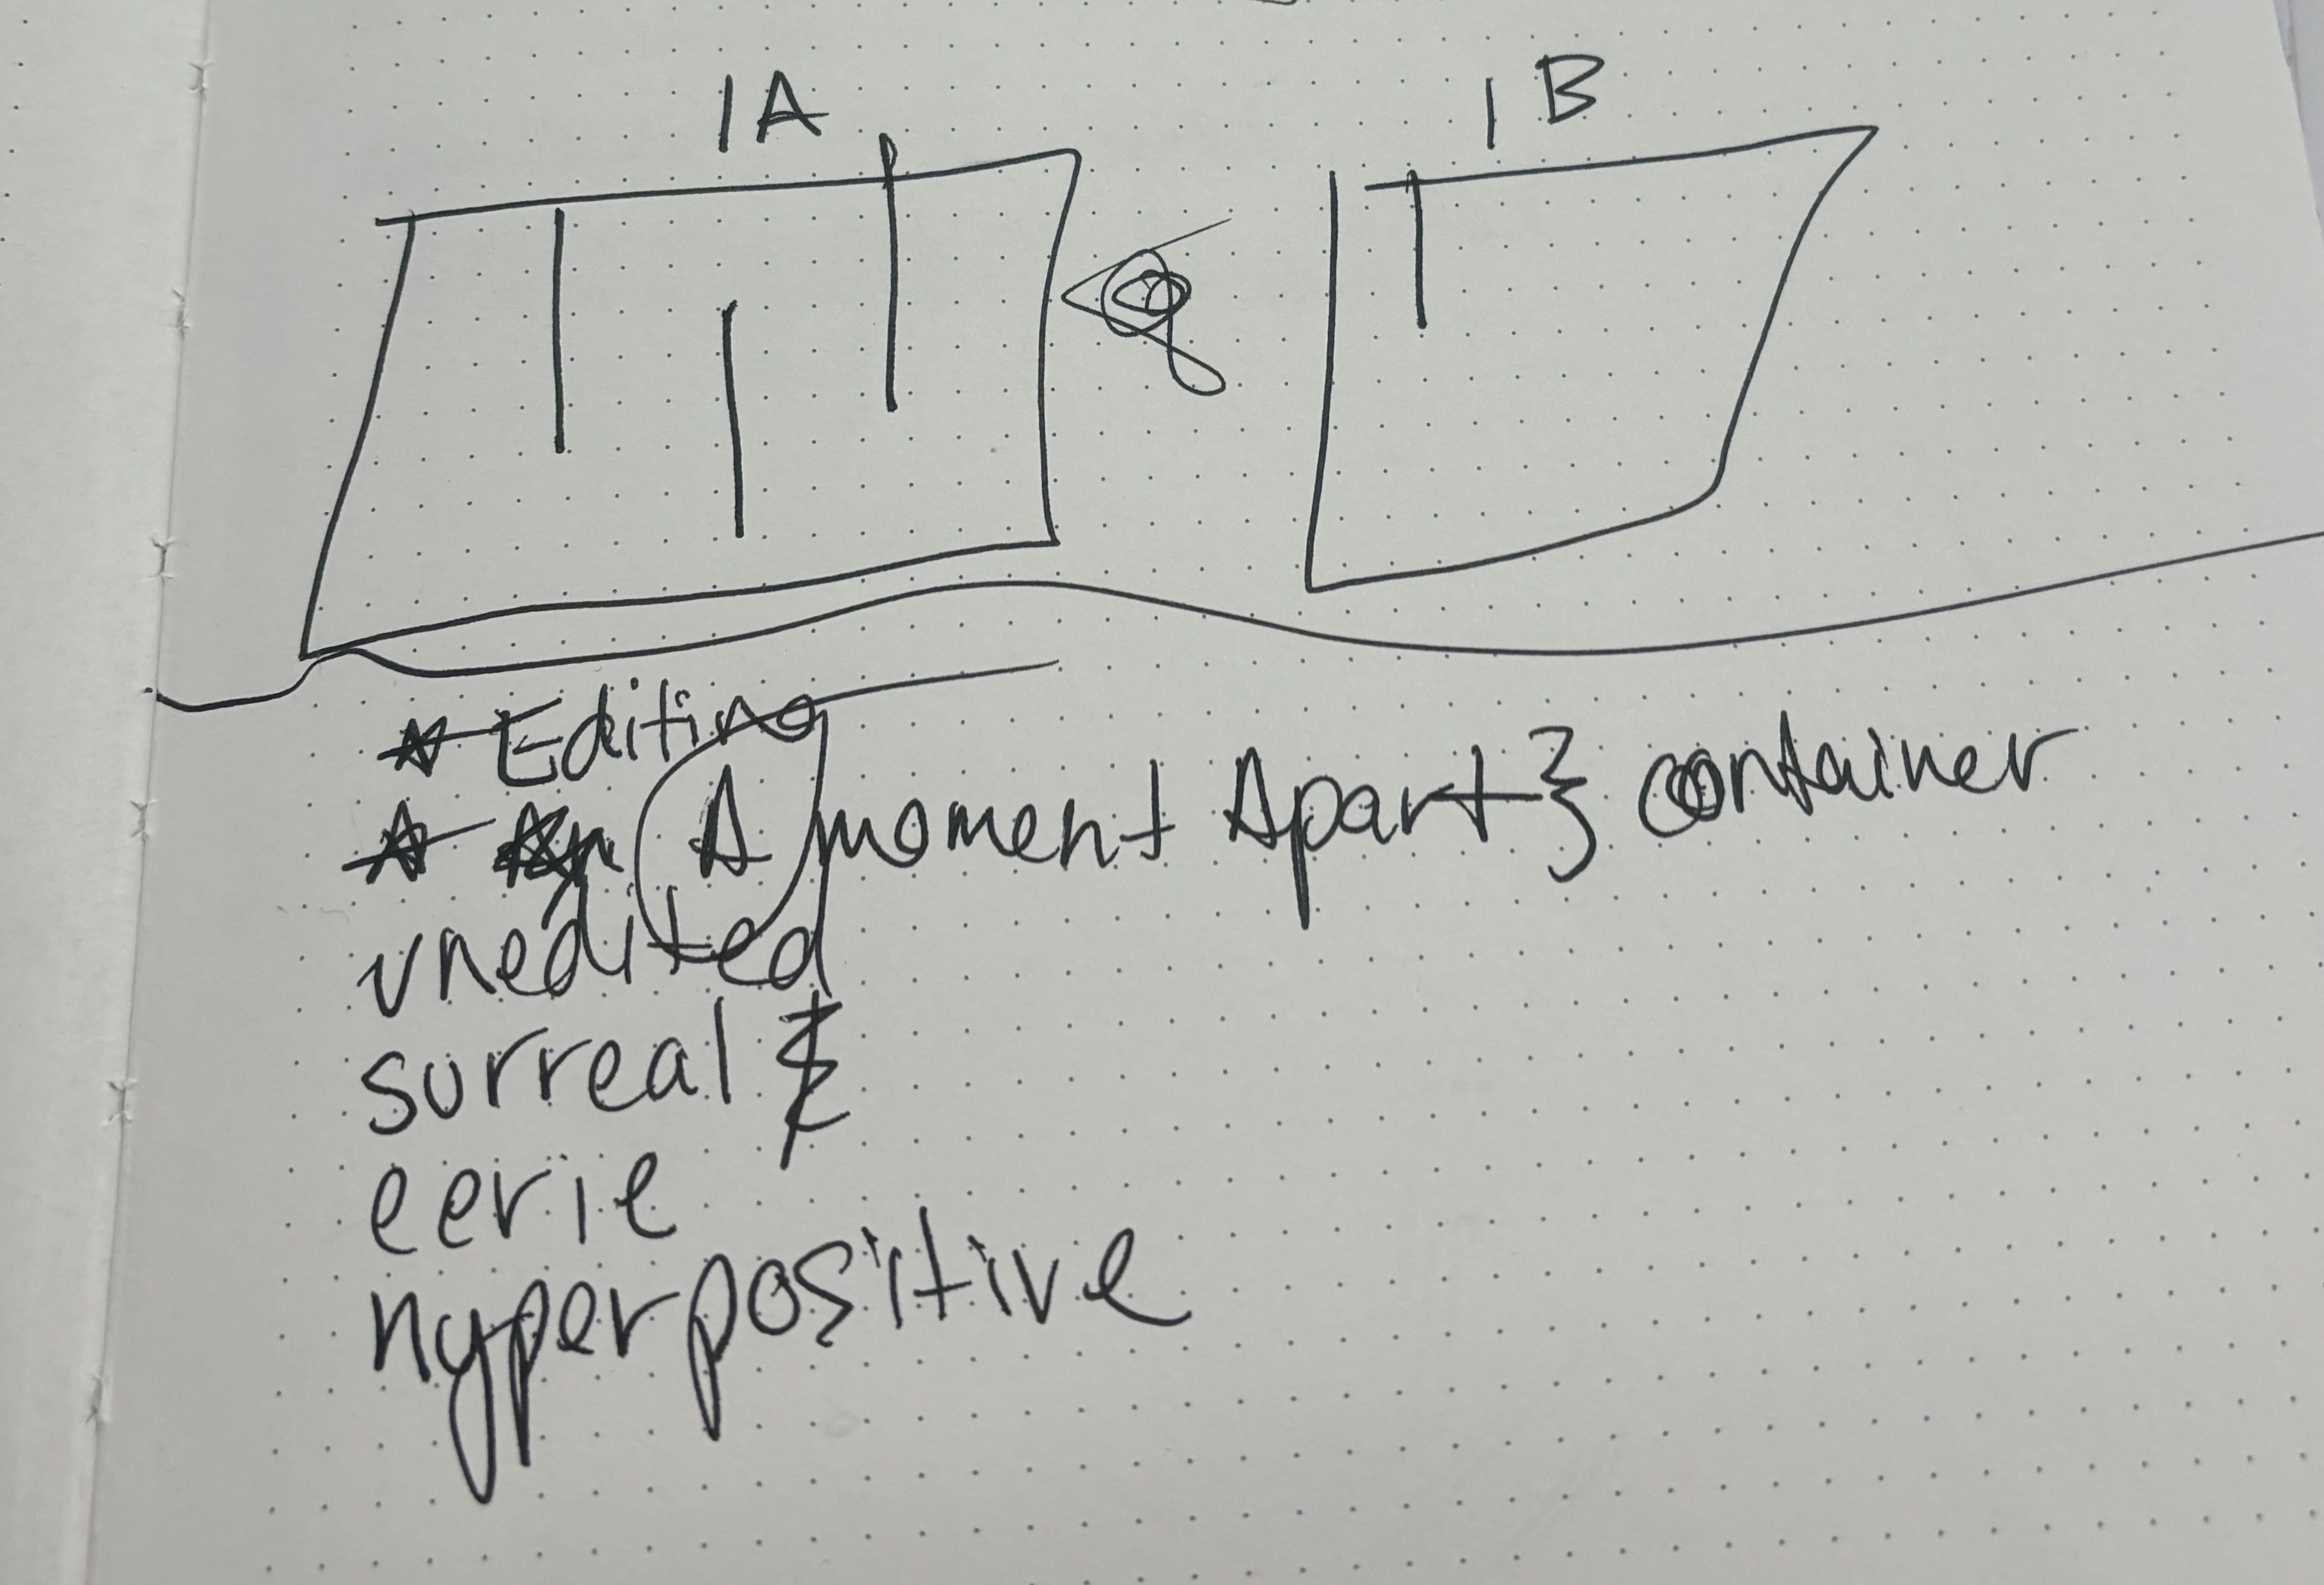 1A
1B
Editing
A moment Apart } container
unedited
surreal &
eerie
hyperpositive